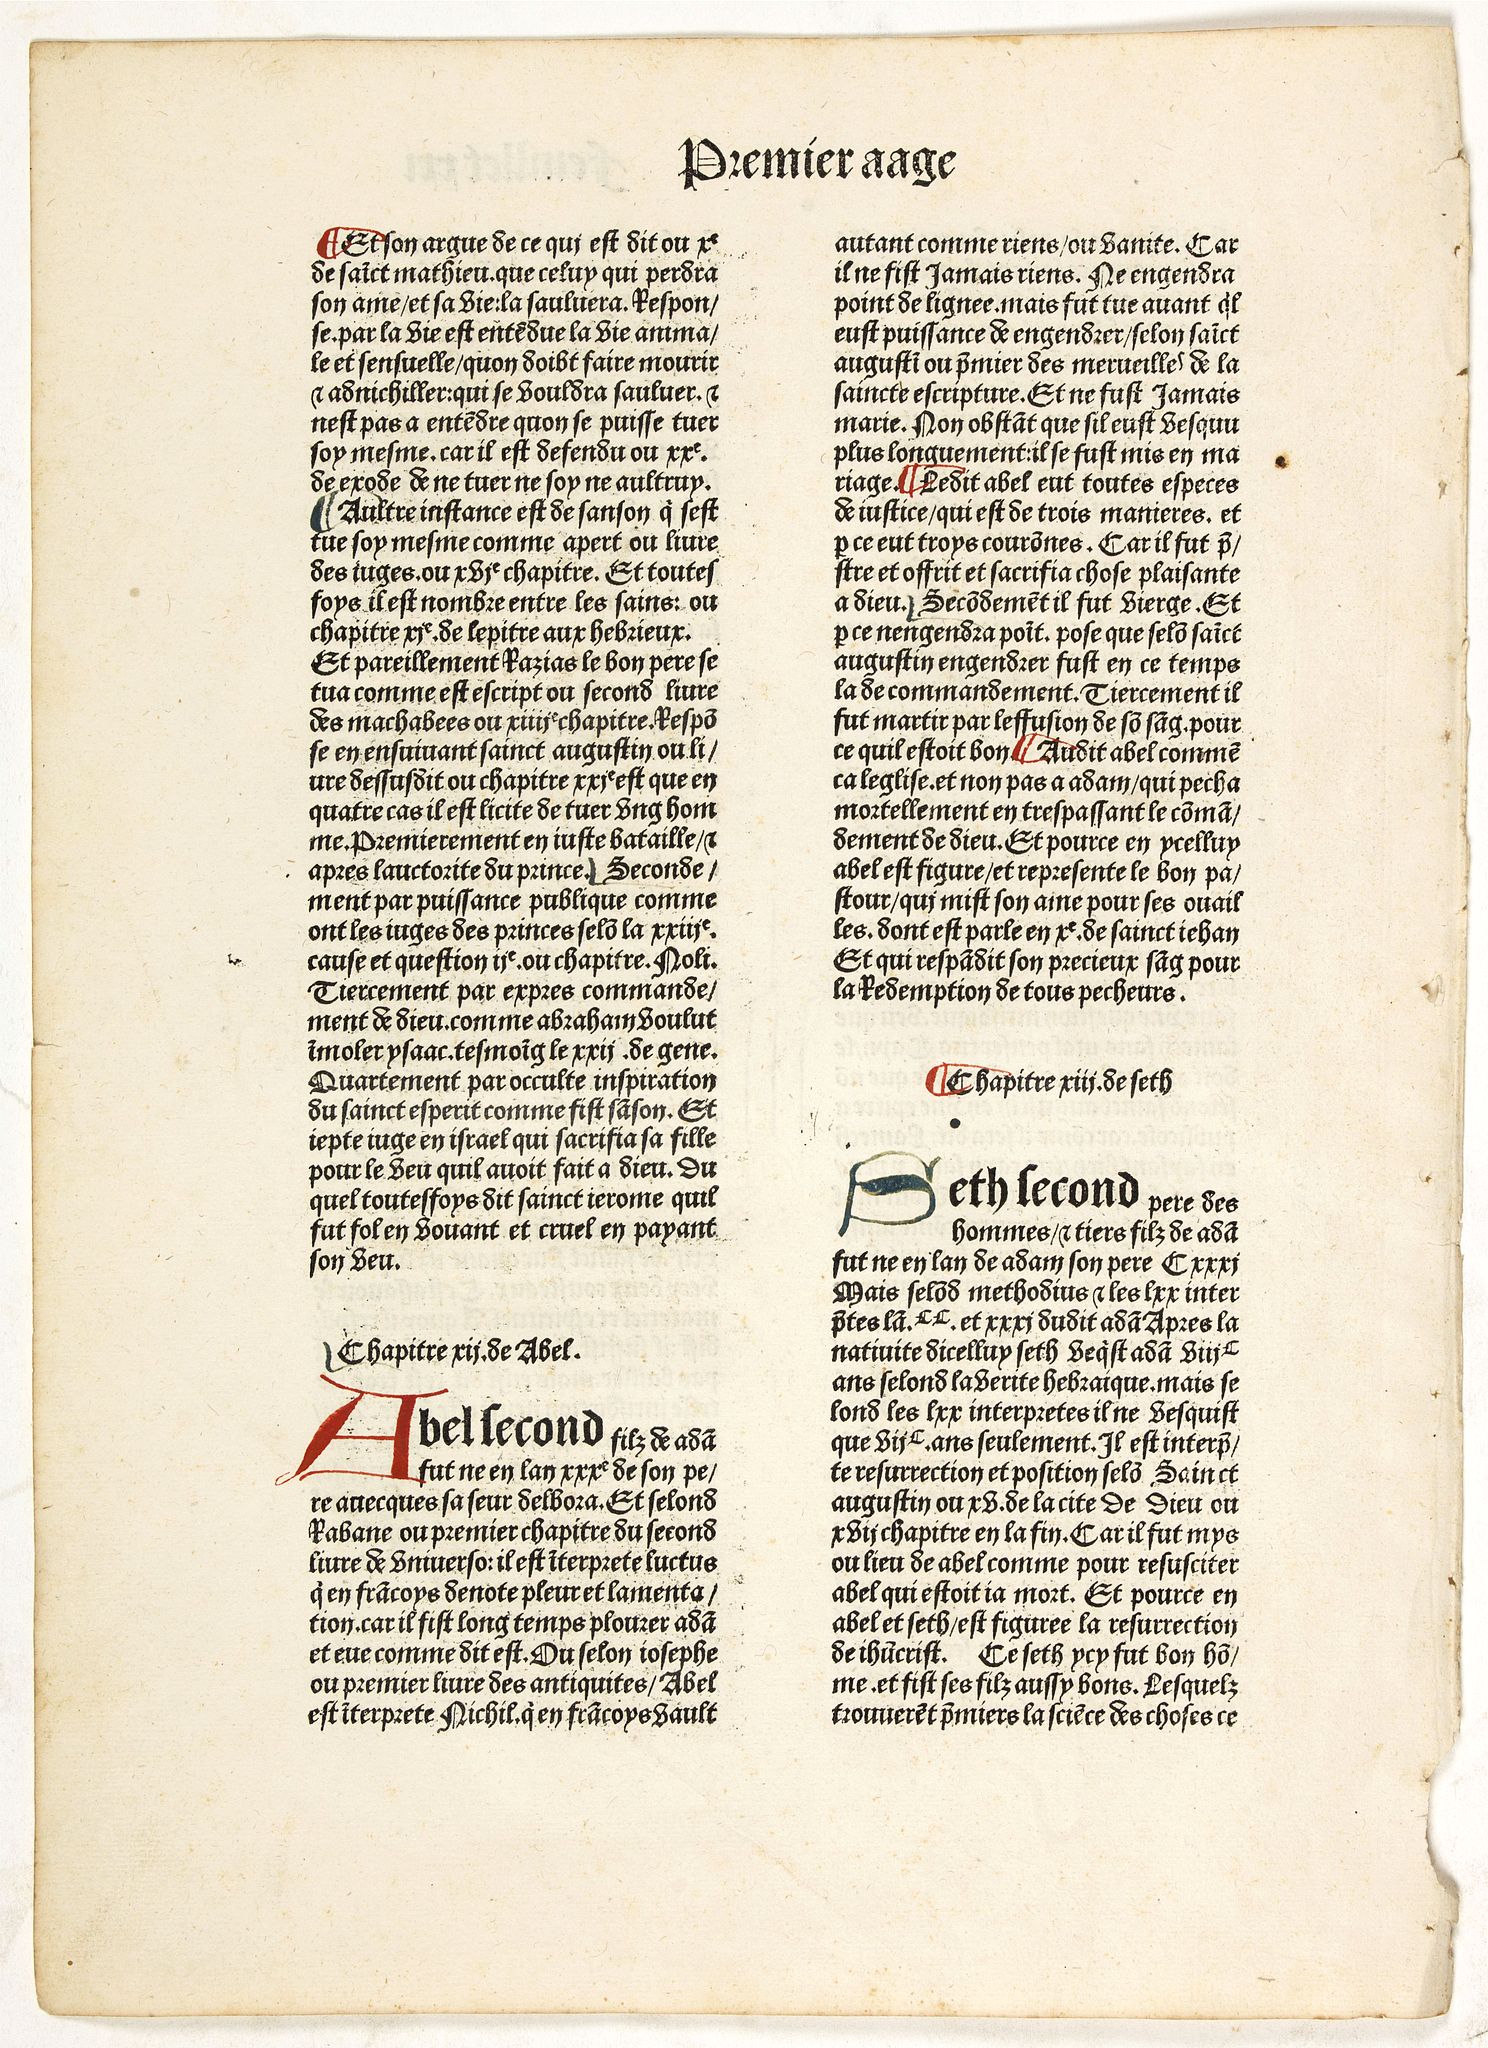 Premier aage
¶ Et son argue de ce qui est dit ou xe
de saīct mathieu. que celuy qui perdra
son ame/et sa vie:la sauluera. Respon/
se. par la vie est entēdue la vie anima/
le et sensuelle/quon doibt faire mourir
⁊ adnichiller:qui se vouldra sauluer. ⁊
nest pas a entēdre quon se puisse tuer
soy mesme. car il est defendu ou xxe.
de exode de ne tuer ne soy ne aultruy.
¶ Aultre instance est de sanson q̄ sest
tue soy mesme comme apert ou liure
des iuges. ou xvje chapitre. Et toutes
foys il est nombre entre les sains: ou
chapitre xje. de lepitre aux hebrieux.
Et pareillement Razias le bon pere se
tua comme est escript ou second liure
des machabees ou xiiije chapitre. Respō
se en ensuiuant sainct augustin ou li/
ure dessusdit ou chapitre xxje est que en
quatre cas il est licite de tuer vng hom
me. Premierement en iuste bataille/⁊
apres lauctorite du prince. Seconde/
ment par puissance publique comme
ont les iuges des princes selō la xxiije.
cause et question ije. ou chapitre. Noli.
Tiercement par expres commande/
ment de dieu. comme abraham voulut
īmoler ysaac. tesmoīg le xxij .de gene.
Quartement par occulte inspiration
du sainct esperit comme fist sāson. Et
iepte iuge en israel qui sacrifia sa fille
pour le veu quil auoit fait a dieu. Du
quel toutesfoys dit sainct ierome quil
fut fol en vouant et cruel en payant
son veu.
Chapitre xij. de Abel.
Abel second filz de adā
fut ne en lan xxxe de son pe/
re auecques sa seur delbora. Et selond
Rabane ou premier chapitre du second
liure de vniuerso: il est īterprete luctus
q̄ en frācoys denote pleur et lamenta/
tion. car il fist long temps plourer adā
et eue comme dit est. Ou selon iosephe
ou premier liure des antiquites/ Abel
est īterprete Nichil. q̄ en frācoys vault
autant comme riens/ou vanite. Car
il ne fist Jamais riens. Ne engendra
point de lignee. mais fut tue auant q̄l
eust puissance de engendrer/selon saīct
augustī ou p̄mier des merueilles de la
saincte escripture. Et ne fust Jamais
marie. Non obstāt que sil eust vesquu
plus longuement:il se fust mis en ma
riage. ¶ Ledit abel eut toutes especes
de iustice/qui est de trois manieres. et
p ce eut troys courōnes. Car il fut p̄/
stre et offrit et sacrifia chose plaisante
a dieu. Secōdemēt il fut vierge. Et
p ce nengendra poīt. pose que selō saīct
augustin engendrer fust en ce temps
la de commandement. Tiercement il
fut martir par leffusion de sō sāg. pour
ce quil estoit bon. ¶ Audit abel commē
ca leglise. et non pas a adam/qui pecha
mortellement en trespassant le cōmā/
dement de dieu. Et pource en ycelluy
abel est figure/et represente le bon pa/
stour/qui mist son ame pour ses ouail
les. dont est parle en xe. de sainct iehan
Et qui respādit son precieux sāg pour
la Redemption de tous pecheurs.
¶ Chapitre xiij. de seth
Seth second pere des
hommes/⁊ tiers filz de adā
fut ne en lan de adam son pere Cxxxj
Mais selōd methodius ⁊ les lxx inter
p̄tes lā. CC. et xxxj dudit adā Apres la
natiuite dicelluy seth veq̄st adā viijC
ans selond la verite hebraique. mais se
lond les lxx interpretes il ne vesquist
que vijC. ans seulement. Il est interp̄/
te resurrection et position selō Sainct
augustin ou xv. de la cite De Dieu ou
xvij chapitre en la fin. Car il fut mys
ou lieu de abel comme pour resusciter
abel qui estoit ia mort. Et pource en
abel et seth/est figuree la resurrection
de ihūcrist. Ce seth ycy fut bon hō/
me .et fist ses filz aussy bons. Lesquelz
trouuerēt p̄miers la sciēce des choses ce